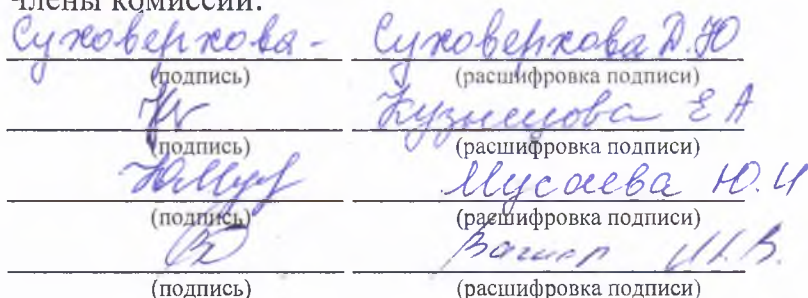 Члены комиссии:
Суховерхова - Суховерхова Д.Ю
(подпись) (расшифровка подписи)
Кузнецова Е А
(подпись) (расшифровка подписи)
Мусаева Ю.И
(подпись) (расшифровка подписи)
М.В.
(подпись) (расшифровка подписи)